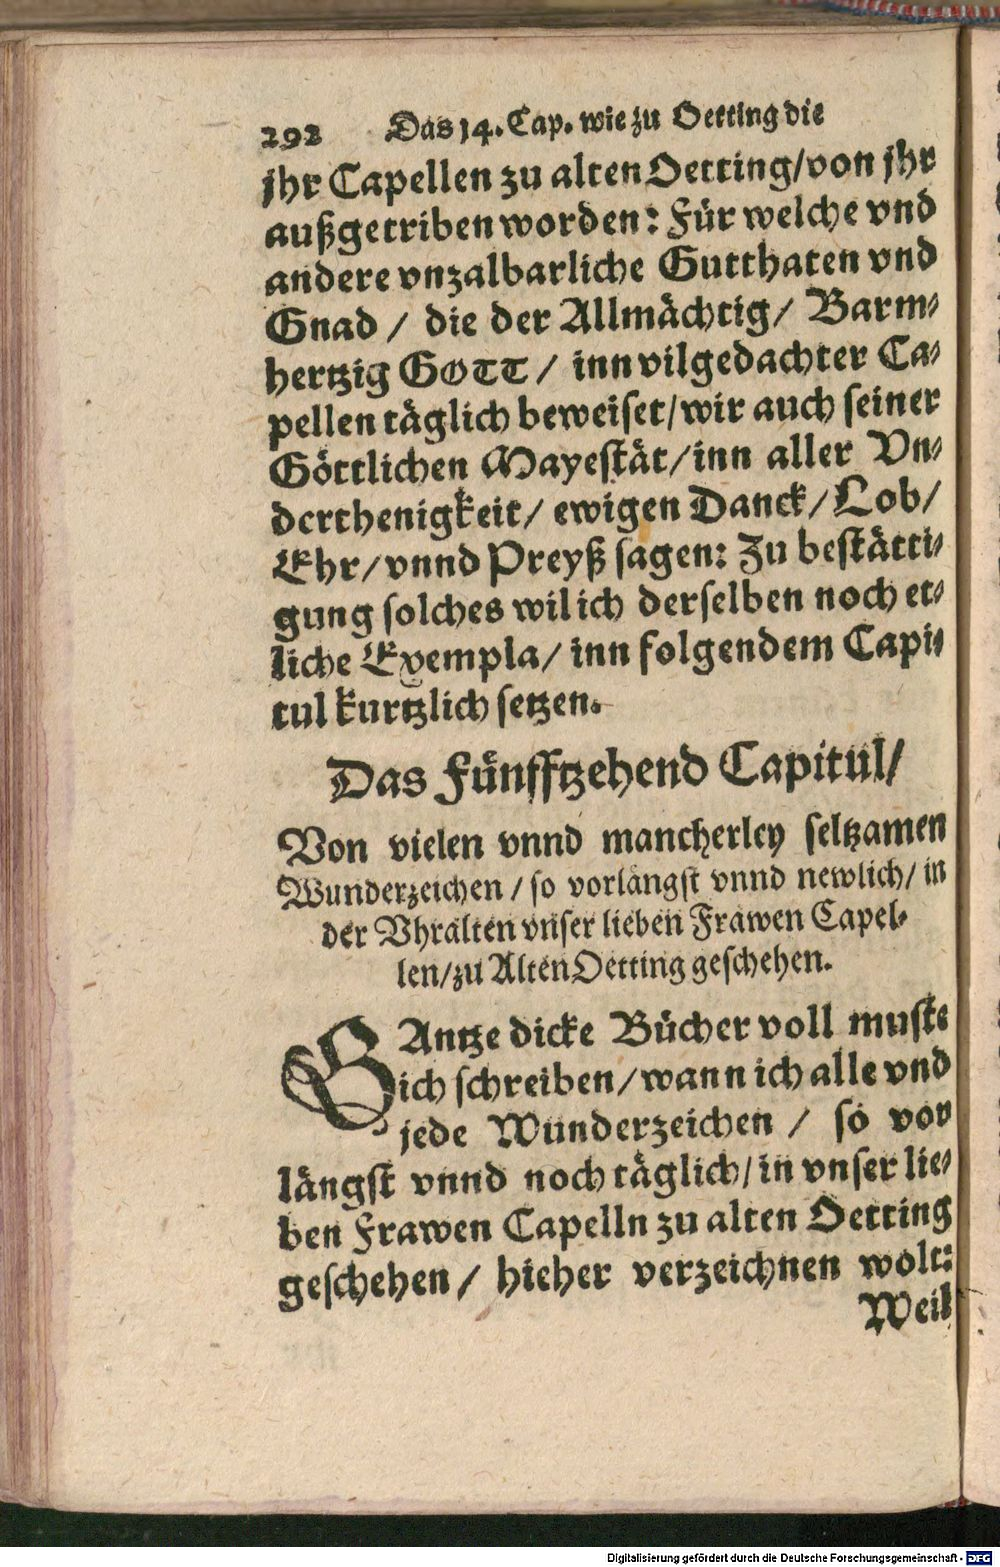 292 Das 14. Cap. wie zu Oetting die
jhr Capellen zu alten Oetting/von jhr
außgetriben worden: Für welche vnd
andere vnzalbarliche Gutthaten vnd
Gnad / die der Allmächtig/ Barm⸗
hertzig GOTT / inn vilgedachter Ca⸗
pellen täglich beweiset/wir auch seiner
Göttlichen Mayestät/inn aller Vn⸗
derthenigkeit/ ewigen Danck/Lob/
Ehr/vnnd Preyß sagen: Zu bestätti⸗
gung solches wil ich derselben noch et⸗
liche Exempla/ inn folgendem Capi⸗
tul kurtzlich setzen.
Das Fünfftzehend Capitul/
Von vielen vnnd mancherley seltzamen
Wunderzeichen / so vorlangst vnnd newlich/ in
der Vhralten vnser lieben Frawen Capel⸗
len/zu Alten Oetting geschehen.
GAntze dicke Bücher voll muste
ich schreiben/wann ich alle vnd
jede Wunderzeichen / so vor
längst vnnd noch täglich/in vnser lie⸗
ben Frawen Capelln zu alten Oetting
geschehen / hieher verzeichnen wolt:
Weil
Digitalisierung gefördert durch die Deutsche Forschungsgemeinschaft - DFG